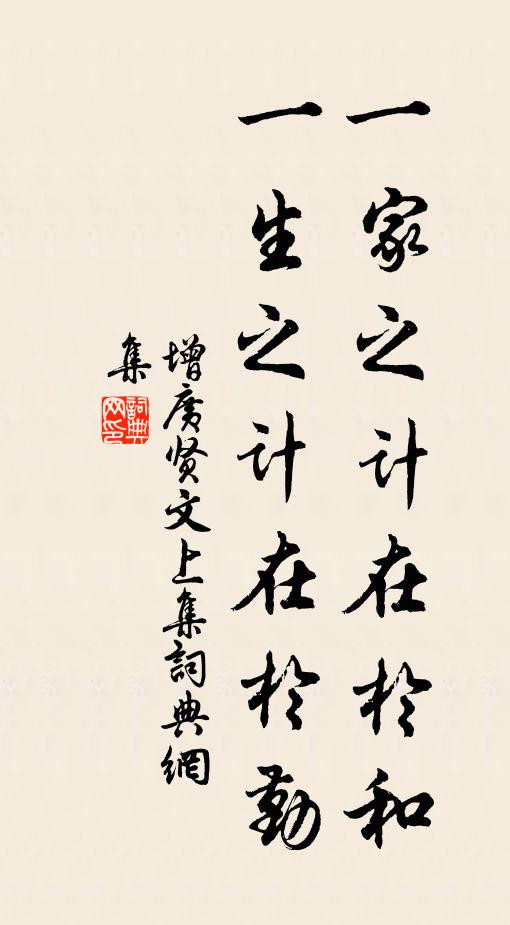 一家之计在於和
一生之计在於勤
增广贤文上集詞典網
集
詞典网印